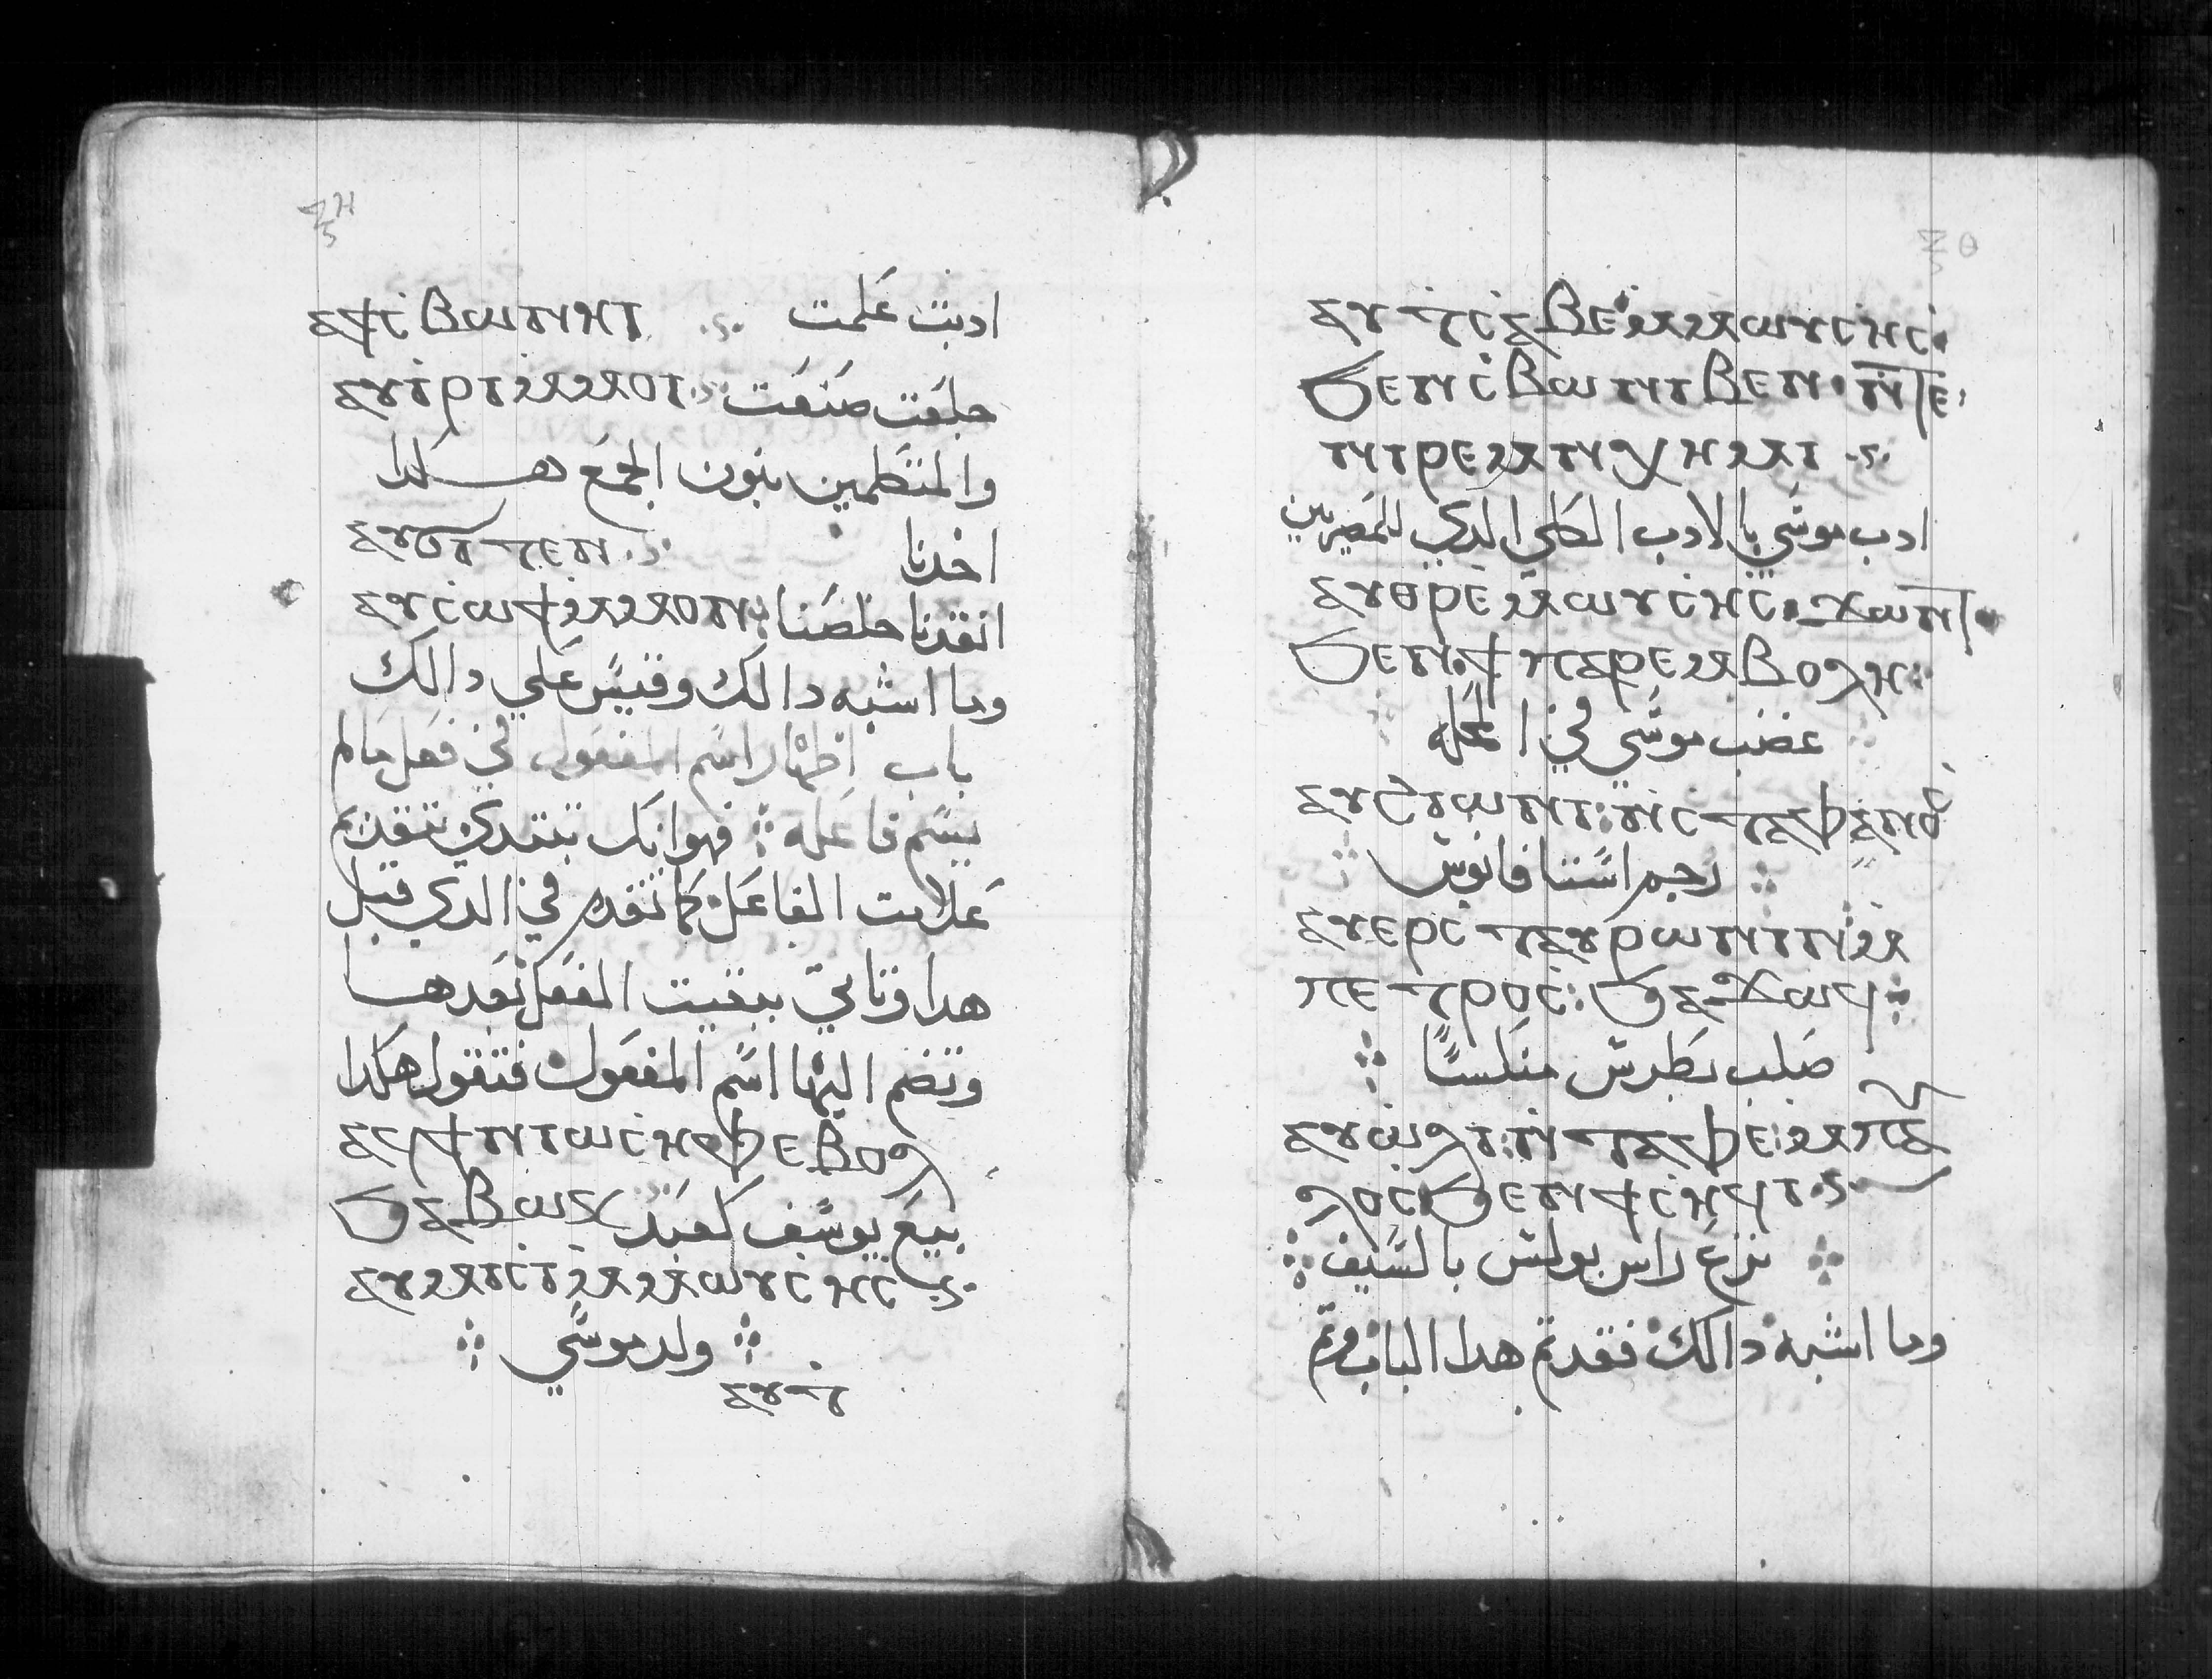 ⲝⲏ
ⲁϯⲥⲃⲱⲛⲏⲓ ادبت علمت
ⲁⲩⲓⲣⲓⲙⲙⲟⲓ خلقت صنعت
والمتكلمين بنون الجمع هكدا
ⲁⲩϭⲓⲧⲉⲛ اخدنا
ⲁⲩⲥⲱϯⲙⲙⲟⲛ انقدنا خلصنا
وما اشبه دالك وقيس علي دالك
باب اظهار اسم المفعول في فعل مالم
يسم فاعله فهو انك تبتدي تتقدم
علامت الفاعل كما تقدم في الدي قبل
هدا وتاتي ببقيت الفعل بعدها
وتضم اليها اسم المفعول فتقول هكدا
ⲁⲩϯⲛⲓⲱⲥⲏⲫⲉⲃⲟⲗ
ϧⲁⲃⲱⲕ بيع يوسف كعبد
ⲁⲩⲙⲓⲥⲓⲙⲙⲱⲩⲥⲏⲥ
ولد موسي
ⲁⲩⲧ
ⲝⲑ
ⲁⲩⲧⲥⲁⲃⲉⲙⲙⲱⲩⲥⲏⲥ
ϧⲉⲛⲥⲃⲱⲛⲓⲃⲉⲛ ⲛⲧⲉ
ⲛⲓⲣⲉⲙⲛⲭⲏⲙⲓ
ادب موسي بالادب الكلي الدي للمصريين
ⲁⲩⲑⲣⲉⲙⲱⲩⲥⲏⲥ ϫⲱⲛⲧ
ϧⲉⲛϯⲡⲁⲣⲉⲙⲃⲟⲗⲏ
غضب موسي في المحله
ⲁⲩϩⲓⲱⲛⲓ ⲛⲥⲧⲁⲫⲁⲛⲟⲥ
رجم استافانوس
ⲁⲩⲉⲣⲥⲧⲁⲩⲣⲱⲛⲓⲛⲙ
ⲡⲉⲧⲣⲟⲥ ϧⲁϫⲱϥ
صلب بطرس منكسا
ⲁⲩⲱⲗⲓ ⲛⲧⲁⲫⲉ ⲙⲡⲁⲩ
ⲗⲟⲥϧⲉⲛϯⲥⲏϥⲓ
نزع راس بولس بالسيف
وما اشبه دالك فقد تم هدا الباب وتم